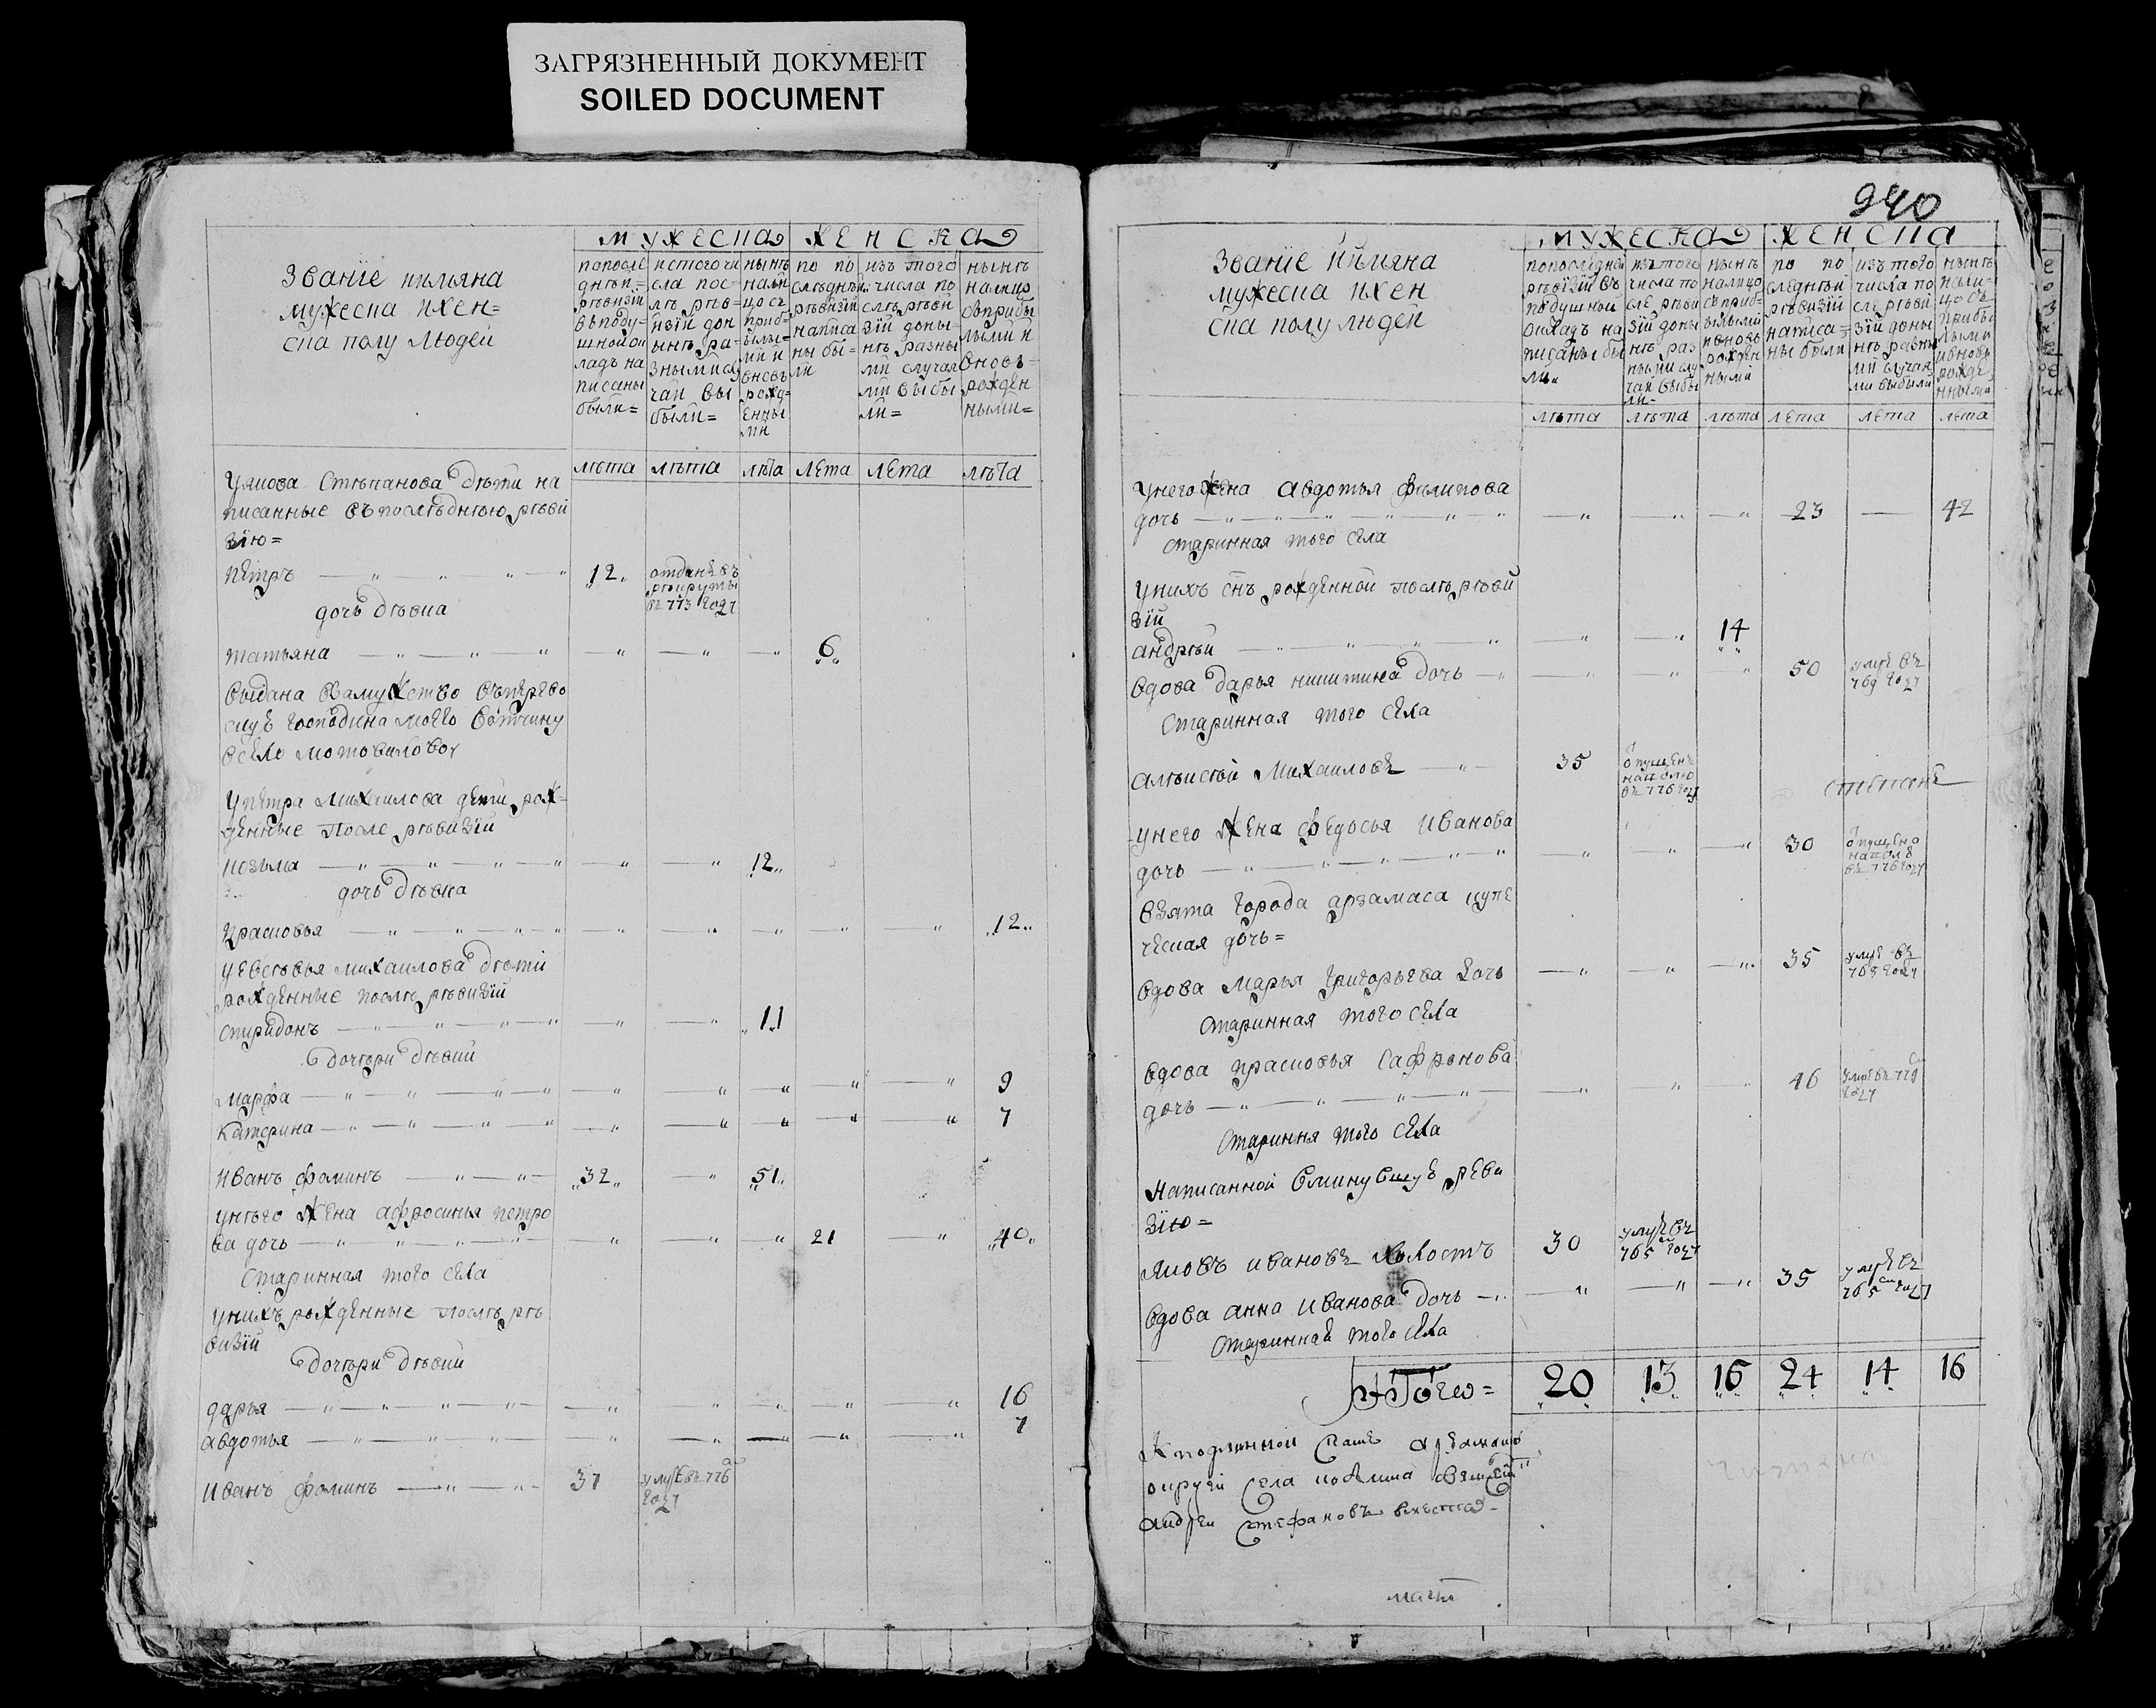 ЗАГРЯЗНЕННЫЙ ДОКУМЕНТ
SOILED DOCUMENT
Званїе иимяна
мужеска ижен=
ска полу людей
мужеска
женска
попосле
днѣи=
ревизїи
вподу=
шной ок
ладъ на
писаны
были=
истого чи
сла пос=
лѣ рѣв=
изїи дон
ынѣ ра=
зными слу
чаи вы
были=
нынѣ
нали
цо съ
приб=
ылы=
ми и
вновь
рожд=
енны
ми
по по
слѣднѣи
рѣвизїи
написа
ны бы=
ли
изъ того
числа по
слѣ рѣви
зїи доны=
нѣ разны
ми случая
ми выбы
ли=
нынѣ
налицо
съприбы
лыми и
вновь=
рожден
ными=
лѣта лѣта лѣта лета лета лѣта
Уякова Стѣпанова дѣти на
писанные въпослѣднюю рѣви
зїю=
Петръ 12 отданъ въ
рѣкруты
въ 773 году
дочь дѣвка
Татьяна 6
выдана взамужство въперво
му господина моего вотчину
всело мотовилово
Упетра Михаилова дети рож=
денные после рѣвизїи
козьма 12
дочь дѣвка
Прасковья 12
уевсѣвья михаилова дѣти
рожденные послѣ рѣвизїи
спиридонъ 11
дочѣри дѣвки
марфа 9
катерина 7
Иванъ фоминъ 32 51
унѣго жена афросинья петро
ва дочь 21 40
Старинная того села
унихъ рожденные послѣ рѣ
визїи
дочѣри дѣвки
дарья 16
авдотья 7
Иванъ фоминъ 37 умре въ 776
году
940
Званїе иимяна
мужеска ижен
ска полу людей
мужеска
женска
попоследней
рѣвїзїи въ
подушной
окладъ на
писаны бы
ли
изъ того
числа по
сле рѣви
зїи доны
нѣ раз
ными слу
чаи выбы
ли=
нынѣ
налицо
съприб=
ылыми
ивновь
рожден
ными
по по
следнѣи
рѣвизїи
написа=
ны были
изъ того
числа по
слѣ рѣви
зїи доны
нѣ разны
ми случая
ми выбыли
нынѣ
нали=
цо съ
прибы
лыми
ивновь
рожде
нными
лѣта лѣта лѣта лета лета лета
унего жена авдотья филипова
дочь 23 42
старинная того села
унихъ снъ рожденной послѣ рѣви
зїи
андрѣи 14
вдова дарья никитина дочь 50 умре въ
769 году
Старинная того села
алѣксѣи Михаиловъ 35 опущенъ
наполю
въ 776 году
степанъ
унего жена федосья иванова
дочь 30 опущена
наполѣ
въ 776 году
взята города арзамаса купе
ческая дочь=
вдова марья григорьева дочь 35 умре въ
768 году
старинная того села
вдова прасковья сафронова
дочь 46 умре въ 779
году
Старинная того села
написанной вминувшую реви
зїю=
Яковъ ивановъ холостъ 30 умре въ
765 году
вдова анна иванова дочь 35 умре въ
765 году
старинная того села
Итого= 20 13 16 24 14 16
К подлинной скаске арзамаской
округи села
андреи Стефановъ вместо